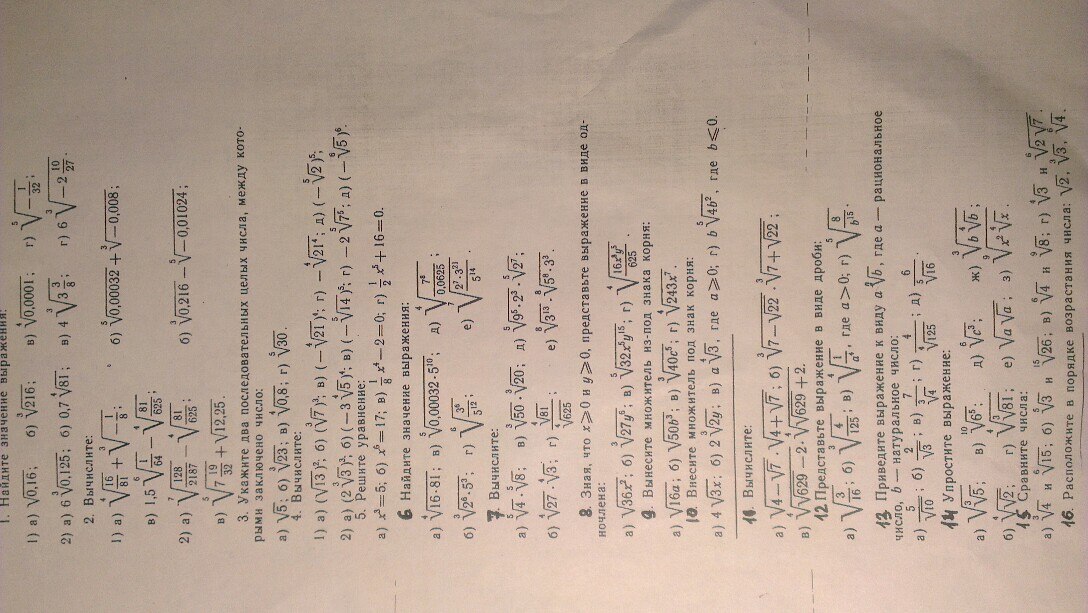 1. Найдите значение выражения:
1) а) √0,16; б) ∛216; в) ∜0,0001; г) ⁵√(−1/32);
2) а) 6∛0,125; б) 0,7∜81; в) 4∛(3 3/8); г) 6∛(−2 10/27).
2. Вычислите:
1) а) ∜(16/81) + ∛(−1/8); б) ⁵√0,00032 + ∛−0,008;
в) 1,5 ⁶√(1/64) − ∜(81/625);
2) а) ⁷√(128/2187) − ∜(81/625); б) ∛0,216 − ⁵√−0,01024;
в) ⁵√(7 19/32) + √12,25.
3. Укажите два последовательных целых числа, между кото-
рыми заключено число:
а) √5; б) ∛23; в) ∜0,8; г) ⁵√30.
4. Вычислите:
1 а) (√13)²; б) (∛7)³; в) (−∜21)⁴; г) −∜21⁴; д) (−⁵√2)⁵;
2) а) (2√3)²; б) (−3∜5)⁴; в) (−⁵√14)⁵; г) −2⁵√7⁵; д) (−⁶√5)⁶.
5. Решите уравнение:
а) x³=5; б) x⁶=17; в) 1/8 x⁴−2=0; г) 1/2 x⁵+16=0.
6 Найдите значение выражения:
а) ∜(16·81); в) ⁵√(0,00032·5¹⁰); д) ∜(7⁸/0,0625);
б) ∛(2⁶·5³); г) ⁶√(3⁶/5¹²); е)
7 Вычислите:
а) ⁵√4·⁵√8; в) ∛50·∛20; д) ⁵√(9⁵·2³)·⁵√27;
б) ∜27·∜3; г) ∜81/∜625; е) ⁸√3¹³·⁸√(5⁸·3³).
8. Зная, что x⩾0 и y⩾0, представьте выражение в виде од-
ночлена:
а) √36x²; б) ∛27y⁶; в) ⁵√(32x⁵y¹⁵); г)
9 Вынесите множитель из-под знака корня:
а) √16a; б) √50b³; в) ∛40c⁵; г) ∜243x⁷.
10. Внесите множитель под знак корня:
а) 4√3x; б) 2∛2y; в) a∜3, где a⩾0; г) b⁵√4b², где b⩽0.
11. Вычислите:
а) √(4−√7)·√(4+√7); б) ∛(7−√22)·∛(7+√22);
в) ∜(√629−2)·∜(√629+2).
12 Представьте выражение в виде дроби:
а) √(3/16); б) ∛(4/125); в) ∜(1/a⁴), где a>0; г) ⁵√(8/b¹⁵).
13 Приведите выражение к виду a ⁿ√b, где a — рациональное
число, b — натуральное число:
а) 5/√10; б) 2/√3; в) 7/∛4; г) 4/∜125; д) 6/⁵√16
14 Упростите выражение:
а) √∛5; в) ¹⁰√6⁵; д) ⁶√c³; ж) ∛(b∜b);
б) ∜√2; г) ∜(∛81); е) √(a√a); з) ⁹√(x²∜x).
15 Сравните числа:
а) ∜4 и √15; б) ⁵√3 и ¹⁵√26; в) ⁶√4 и ⁹√8; г) ∜3 и ⁶√(2√7).
16. Расположите в порядке возрастания числа: √2, ∛3, ⁶√4.